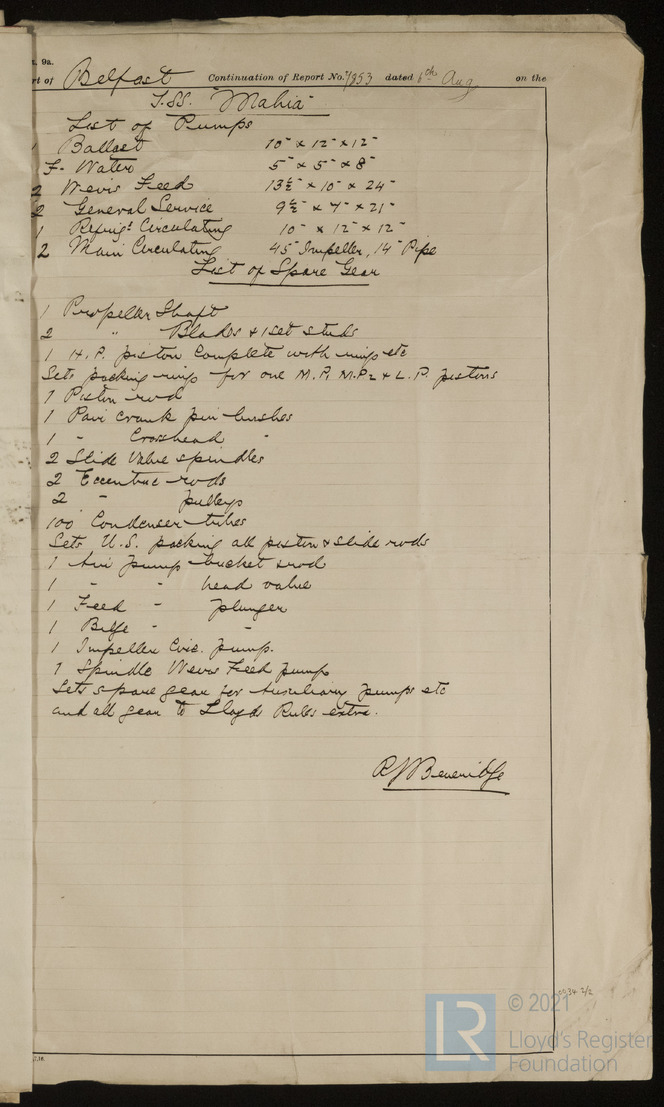 9a.
rt of Belfast Continuation of Report No. 7853 dated 6th Aug on the
T.SS. "Mahia"
List of Pumps
1 Ballast 10" x 12" x 12"
F. Water 5" x 5" x 8"
2 Weirs Feed 13½" x 10" x 24"
2 General Service 9½" x 7" x 21"
1 Refrigt Circulating 10" x 12" x 12"
2 Main Circulating 45" Impeller, 14" Pipe
List of Spare Gear
1 Propeller Shaft
2 " Blades & 1 set studs
1 H.P. piston complete with rings etc
Sets packing rings for one M.P. M.P2 & L.P. pistons
1 Piston rod
1 Pair crank pin bushes
1 " Crosshead "
2 Slide Valve spindles
2 Eccentric rods
2 " pulleys
100 Condenser tubes
Sets U.S. packing all piston & slide rods
1 Air pump bucket & rod
1 " " head valve
1 Feed " plunger
1 Bilge " "
1 Impeller Circ. pump.
1 Spindle Weirs Feed pump
Sets spare gear for Auxiliary pumps etc
and all gear to Lloyds Rules extra.
R J Beveridge
0034 2/2
LR
© 2021
Lloyd's Register
Foundation